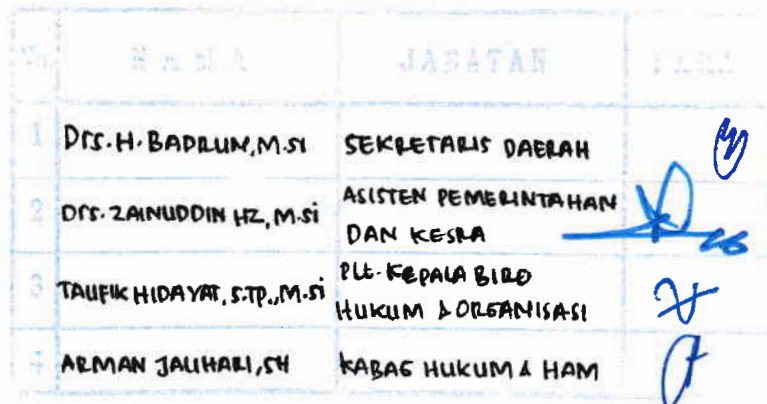 No NAMA JABATAN PARAF
1 Drs. H. BADRUN, M.Si SEKRETARIS DAERAH
2 Drs. ZAINUDDIN HZ, M.Si ASISTEN PEMERINTAHAN
DAN KESRA
3 TAUFIK HIDAYAT, S.TP., M.Si PLt. KEPALA BIRO
HUKUM & ORGANISASI
4 ARMAN JAUHARI, SH KABAG HUKUM & HAM